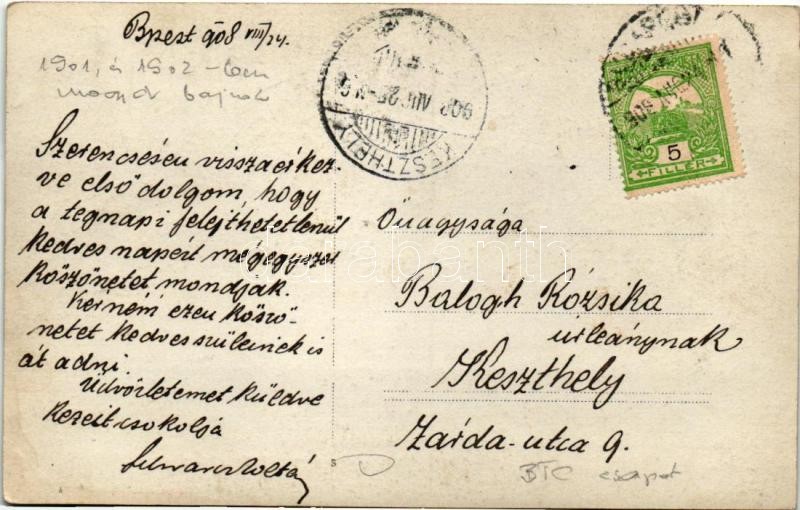 Bpest 908 VIII/24.
1901, és 1902-ben
bajnok
Szerencsésen visszaérkez-
ve első dolgom, hogy
a tegnapi felejthetetlenül
kedves napért mégegyszer
köszönetet mondjak.
Kérném ezen köszö-
netet kedves szüleinek is
át adni.
Üdvözletemet küldve
kezeit csokolja
KESZTHELY
5
FILLÉR
Őnagysága
Balogh Rózsika
urleánynak
Keszthely
Zárda-utca 9.
BTC csapat
darabanth